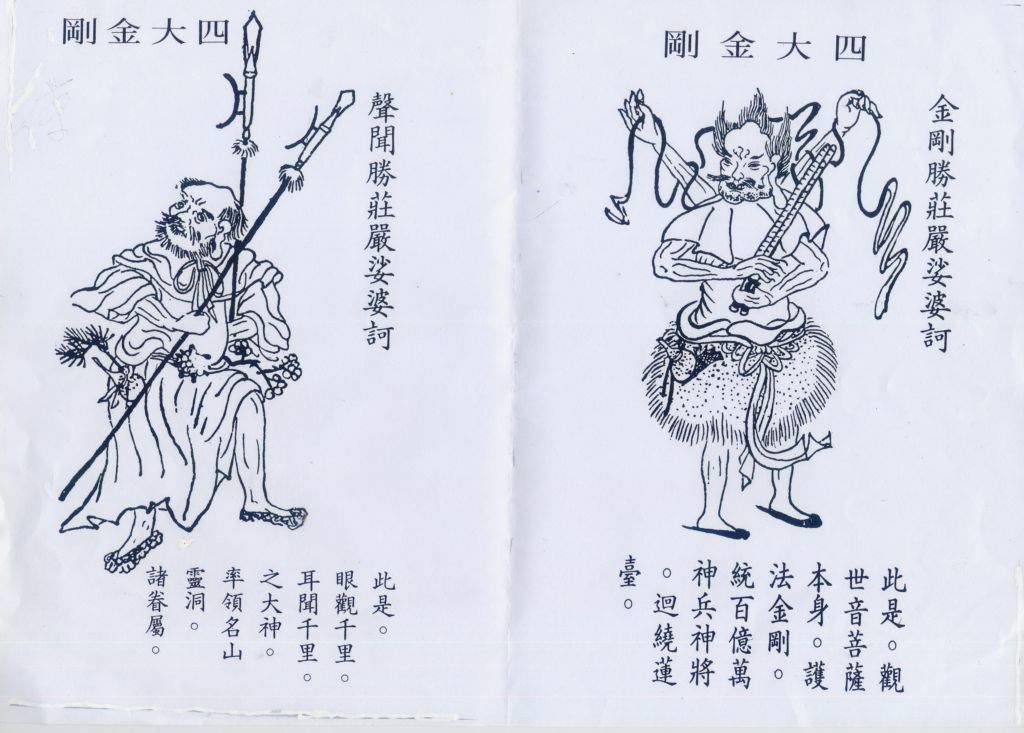 四大金剛
金剛勝莊嚴娑婆訶
此是。觀
世音菩薩
本身。護
法金剛。
統百億萬
神兵神將
。迴繞蓮
臺。
四大金剛
聲聞勝莊嚴娑婆訶
此是。
眼觀千里。
耳聞千里。
之大神。
率領名山
靈洞。
諸眷屬。